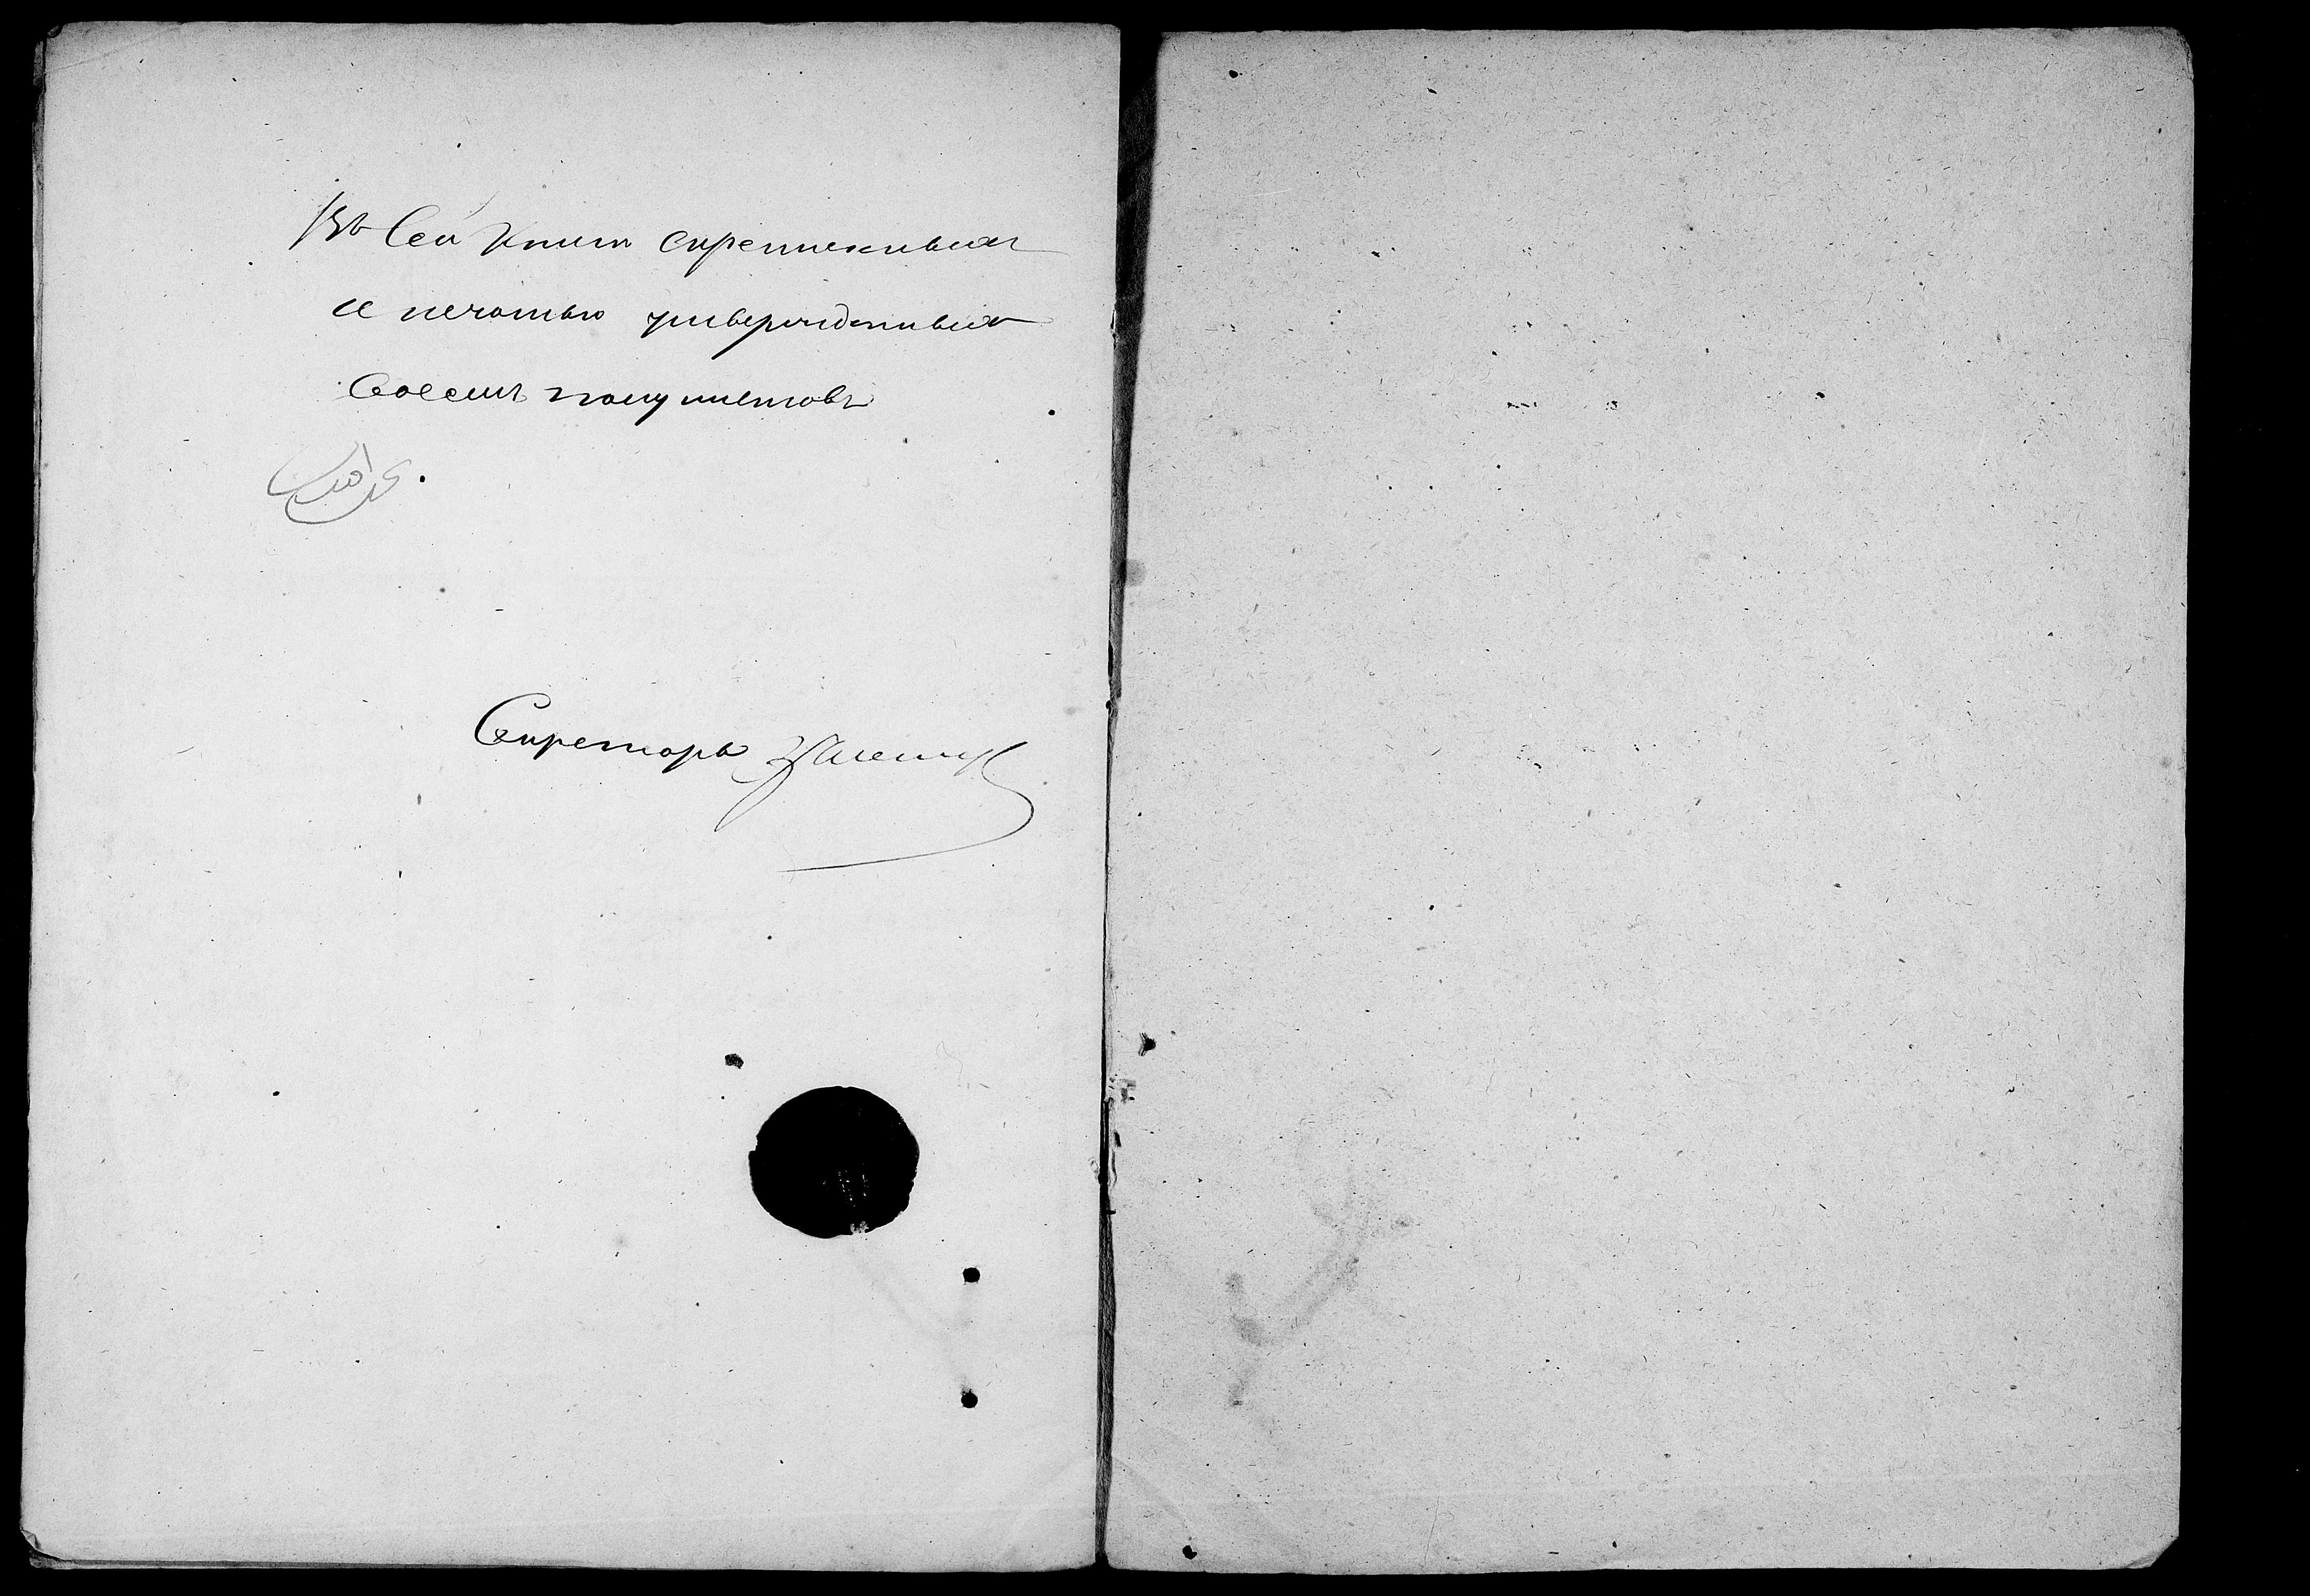 Въ Сей Книги скрепленныхъ
и печатью утвержденныхъ
восемь полулистовъ
Секретарь